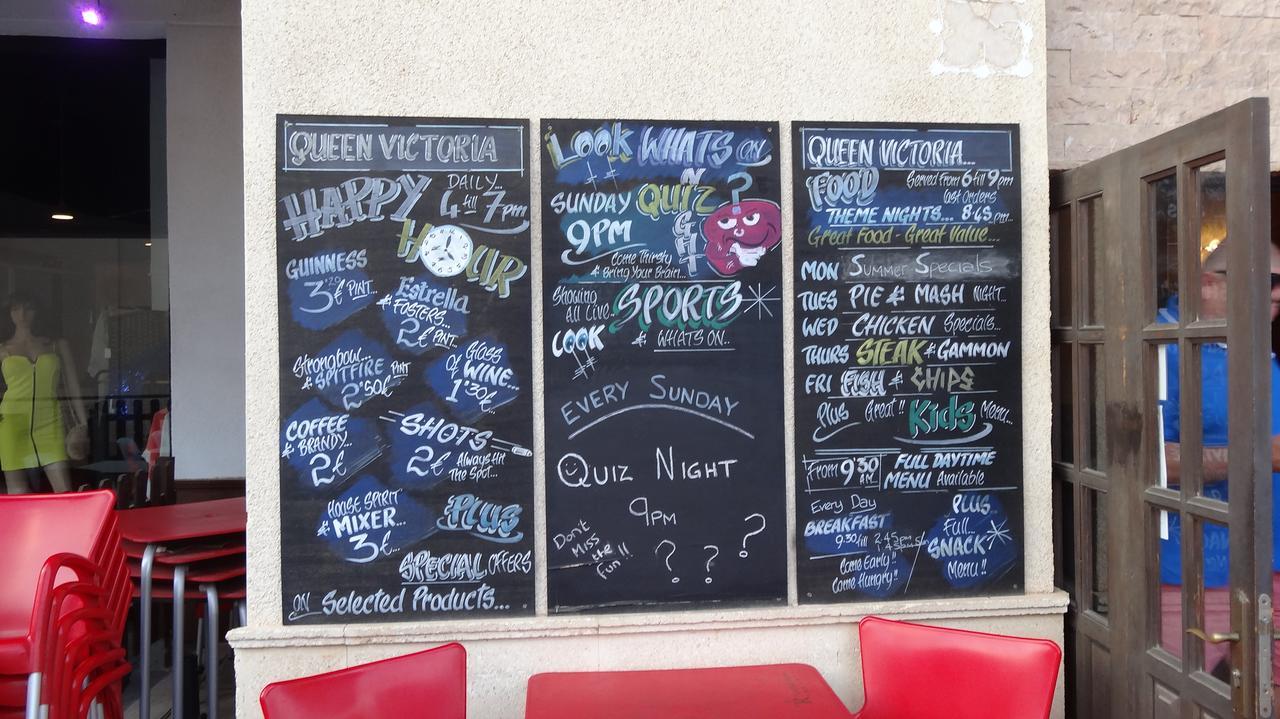 QUEEN VICTORIA
HAPPY DAILY...
4 till 7pm
HOUR
GUINNESS
3 € PINT...
Estrella
& FOSTERS...
2€ PINT...
Strongbow...
& SPITFIRE PINT
2'50€
Glass
of WINE...
1'30€...
COFFEE
& BRANDY...
2€
SHOTS
2€ Always Hit
The Spot...
HOUSE SPIRIT
& MIXER...
3€...
Plus
SPECIAL OFFERS
ON Selected Products...
LOOK WHATS ON
SUNDAY QUIZ NIGHT
9PM
Come Thirsty
& Bring Your Brain...
Showing
All Live... SPORTS
LOOK & WHATS ON..
EVERY SUNDAY
QUIZ NIGHT
9PM
Don't
Miss
the
fun!!
? ? ?
QUEEN VICTORIA....
FOOD Served From 6 till 9pm
Last Orders
THEME NIGHTS... 8.45 pm...
Great Food - Great Value...
MON Summer Specials
TUES PIE & MASH NIGHT...
WED CHICKEN Specials...
THURS STEAK & GAMMON
FRI FISH & CHIPS
Plus Great!! Kids Menu...
From 9'30 AM FULL DAYTIME
MENU Available
Every Day
BREAKFAST
9.30 till
Come Early!!
Come Hungry!!
PLUS
Full...
SNACK
Menu!!